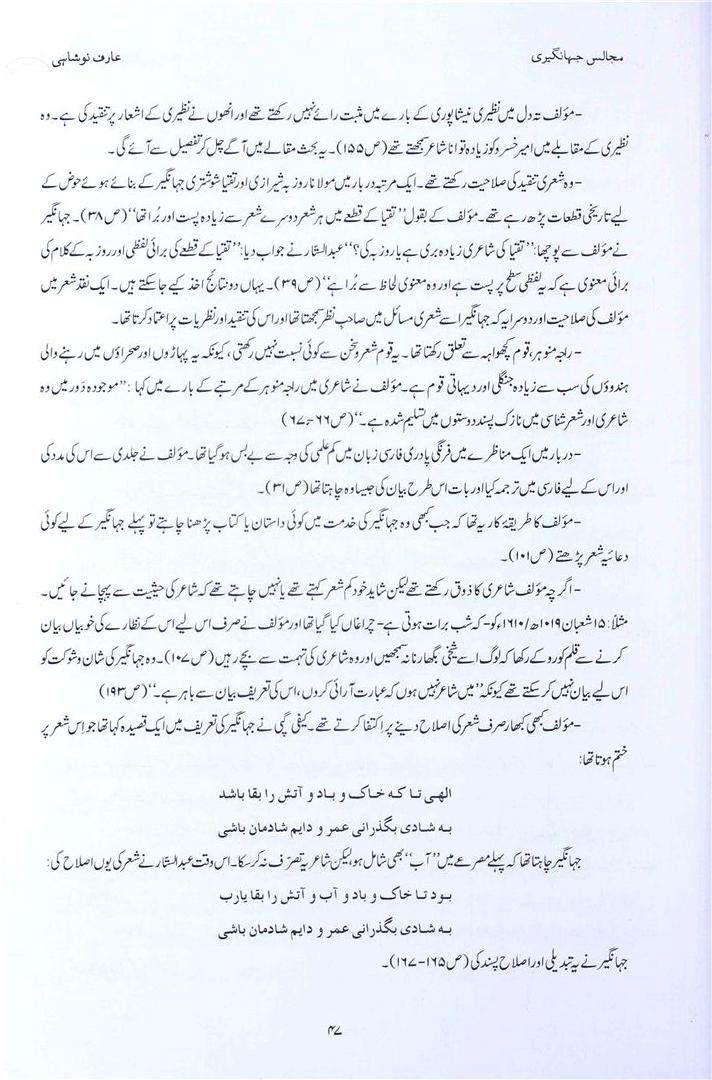 مجالس جہانگیری
عارف نوشاہی
-مؤلف تہ دل میں نظیری نیشاپوری کے بارے میں مثبت رائے نہیں رکھتے تھے اور انھوں نے نظیری کے اشعار پر تنقید کی ہے۔ وہ
نظیری کے مقابلے میں امیر خسرو کو زیادہ توانا شاعر سمجھتے تھے (ص۱۵۵)۔ یہ بحث مقالے میں آگے چل کر تفصیل سے آئے گی۔
-وہ شعری تنقید کی صلاحیت رکھتے تھے۔ ایک مرتبہ دربار میں مولانا روزبہ شیرازی اور تقیا شوشتری جہانگیر کے بنائے ہوئے حوض کے
لیے تاریخی قطعات پڑھ رہے تھے۔ مؤلف کے بقول ’’تقیا کے قطعے میں ہر شعر دوسرے شعر سے زیادہ پست اور بُرا تھا‘‘ (ص۳۸)۔ جہانگیر
نے مؤلف سے پوچھا: ’’تقیا کی شاعری زیادہ بری ہے یا روزبہ کی؟‘‘ عبدالستّار نے جواب دیا: ’’تقیا کے قطعے کی برائی لفظی اور روزبہ کے کلام کی
برائی معنوی ہے کہ یہ لفظی سطح پر پست ہے اور وہ معنوی لحاظ سے بُرا ہے‘‘ (ص۳۹)۔ یہاں دو نتائج اخذ کیے جا سکتے ہیں۔ ایک نقد شعر میں
مؤلف کی صلاحیت اور دوسرا یہ کہ جہانگیر اسے شعری مسائل میں صاحب نظر سمجھتا تھا اور اس کی تنقید اور نظریات پر اعتماد کرتا تھا۔
-راجہ منوہر، قوم کچھواہہ سے تعلق رکھتا تھا۔ یہ قوم شعر و سخن سے کوئی نسبت نہیں رکھتی، کیونکہ یہ پہاڑوں اور صحراؤں میں رہنے والی
ہندوؤں کی سب سے زیادہ جنگلی اور دیہاتی قوم ہے۔ مؤلف نے شاعری میں راجہ منوہر کے مرتبے کے بارے میں کہا: ’’موجودہ دَور میں وہ
شاعری اور شعر شناسی میں نازک پسند دوستوں میں تسلیم شدہ ہے۔‘‘ (ص۶۶-۶۷)
-دربار میں ایک مناظرے میں فرنگی پادری فارسی زبان میں کم علمی کی وجہ سے بے بس ہو گیا تھا۔ مؤلف نے جلدی سے اس کی مدد کی
اور اس کے لیے فارسی میں ترجمہ کیا اور بات اس طرح بیان کی جیسا وہ چاہتا تھا (ص۳۱)۔
-مؤلف کا طریقۂ کار یہ تھا کہ جب کبھی وہ جہانگیر کی خدمت میں کوئی داستان یا کتاب پڑھنا چاہتے تو پہلے جہانگیر کے لیے کوئی
دعائیہ شعر پڑھتے (ص۱۰۱)۔
-اگرچہ مؤلف شاعری کا ذوق رکھتے تھے لیکن شاید خود کم شعر کہتے تھے یا نہیں چاہتے تھے کہ شاعر کی حیثیت سے پہچانے جائیں۔
مثلاً: ۱۵ شعبان ۱۰۱۹ھ/۱۶۱۰ء کو-کہ شب برات ہوتی ہے-چراغاں کیا گیا تھا اور مؤلف نے صرف اس لیے اس کے نظارے کی خوبیاں بیان
کرنے سے قلم کو روکے رکھا کہ لوگ اسے شیخی بگھارنا نہ سمجھیں اور وہ شاعری کی تہمت سے بچے رہیں (ص۱۰۷)۔ وہ جہانگیر کی شان و شوکت کو
اس لیے بیان نہیں کر سکتے تھے کیونکہ ’’میں شاعر نہیں ہوں کہ عبارت آرائی کروں، اس کی تعریف بیان سے باہر ہے۔‘‘ (ص۱۹۳)
-مؤلف کبھی کبھار صرف شعر کی اصلاح دینے پر اِکتفا کرتے تھے۔ کیفی گچی نے جہانگیر کی تعریف میں ایک قصیدہ کہا تھا جو اِس شعر پر
ختم ہوتا تھا:
الٰہی تا کہ خاک و باد و آتش را بقا باشد
بہ شادی بگذرانی عمر و دایم شادمان باشی
جہانگیر چاہتا تھا کہ پہلے مصرعے میں ’’آب‘‘ بھی شامل ہو، لیکن شاعر یہ تصرّف نہ کر سکا۔ اس وقت عبدالستّار نے شعر کی یوں اصلاح کی:
بود تا خاک و باد و آب و آتش را بقا یارب
بہ شادی بگذرانی عمر و دایم شادمان باشی
جہانگیر نے یہ تبدیلی اور اصلاح پسند کی (ص۱۶۵-۱۶۷)۔
۴۷